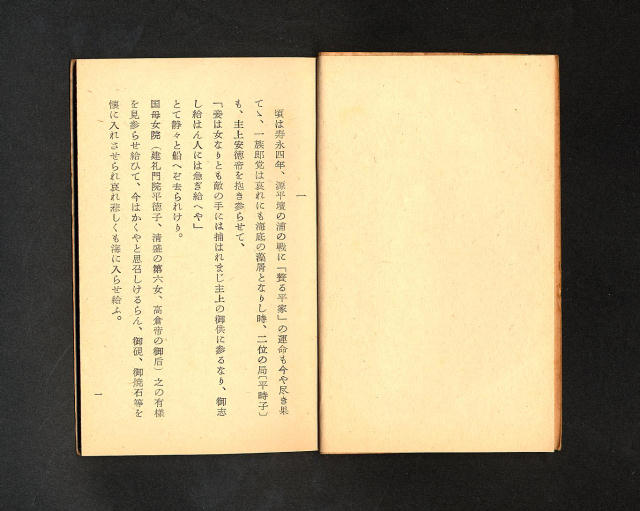 一
頃は寿永四年、源平壇の浦の戦に「驕る平家」の運命も今や尽き果
てゝ、一族郎党は哀れにも海底の藻屑となりし時、二位の局〔平時子〕
も、主上安徳帝を抱き参らせて、
「妾は女なりとも敵の手には捕はれまじ主上の御供に参るなり、御志
し給はん人には急ぎ給へや」
とて静々と船へぞ去られけり。
国母女院（建礼門院平徳子、清盛の第六女、高倉帝の御后）之の有様
を見参らせ給ひて、今はかくやと思召しけるらん、御硯、御焼石等を
懐に入れさせられ哀れ悲しくも海に入らせ給ふ。
一